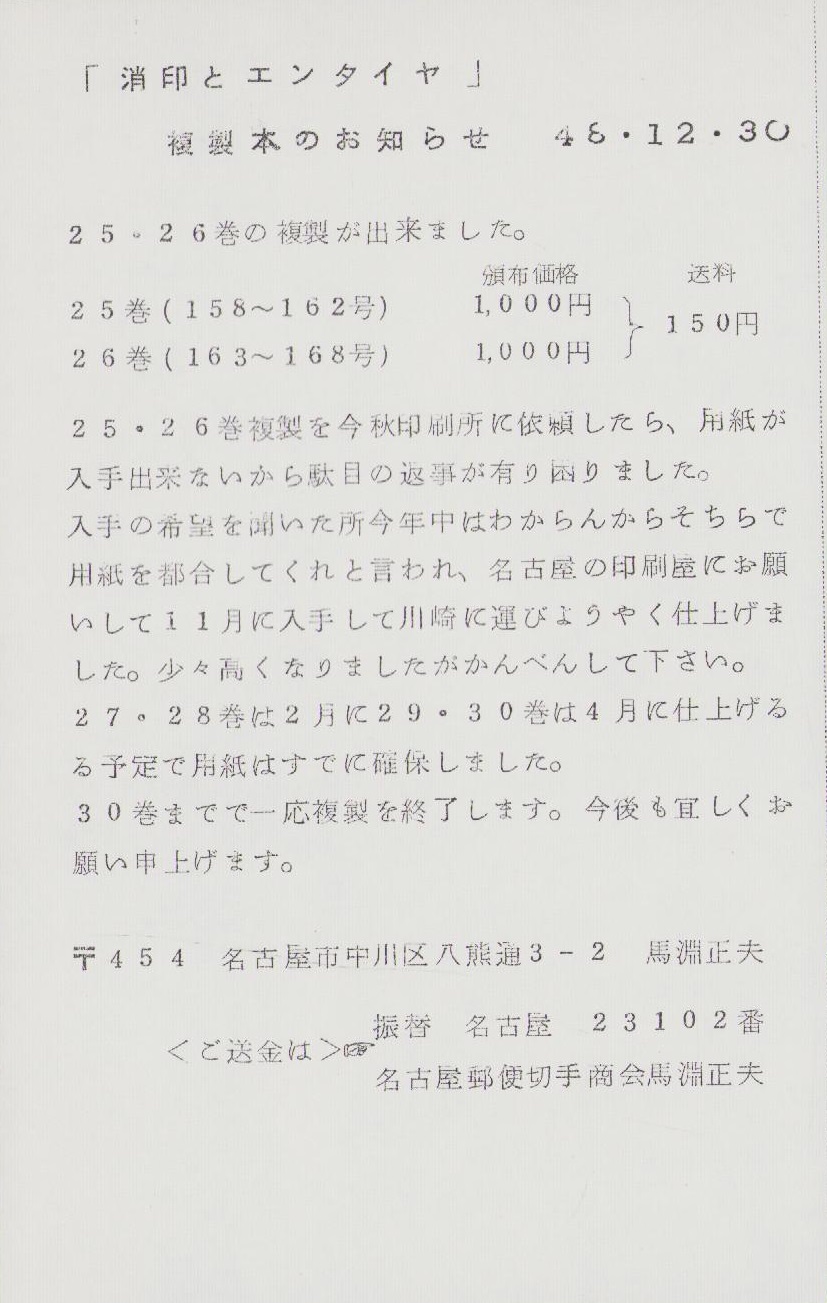 「消印とエンタイヤ」
複製本のお知らせ　48・12・30
25・26巻の複製が出来ました。
頒布価格　送料
25巻(158〜162号)　1,000円
150円
26巻(163〜168号)　1,000円
25・26巻複製を今秋印刷所に依頼したら、用紙が
入手出来ないから駄目の返事が有り困りました。
入手の希望を聞いた所今年中はわからんからそちらで
用紙を都合してくれと言われ、名古屋の印刷屋にお願
いして11月に入手して川崎に運びようやく仕上げま
した。少々高くなりましたがかんべんして下さい。
27・28巻は2月に29・30巻は4月に仕上げる
る予定で用紙はすでに確保しました。
30巻までで一応複製を終了します。今後も宜しくお
願い申上げます。
〒454　名古屋市中川区八熊通3−2　馬淵正夫
振替　名古屋　23102番
＜ご送金は＞☞
名古屋郵便切手商会馬淵正夫